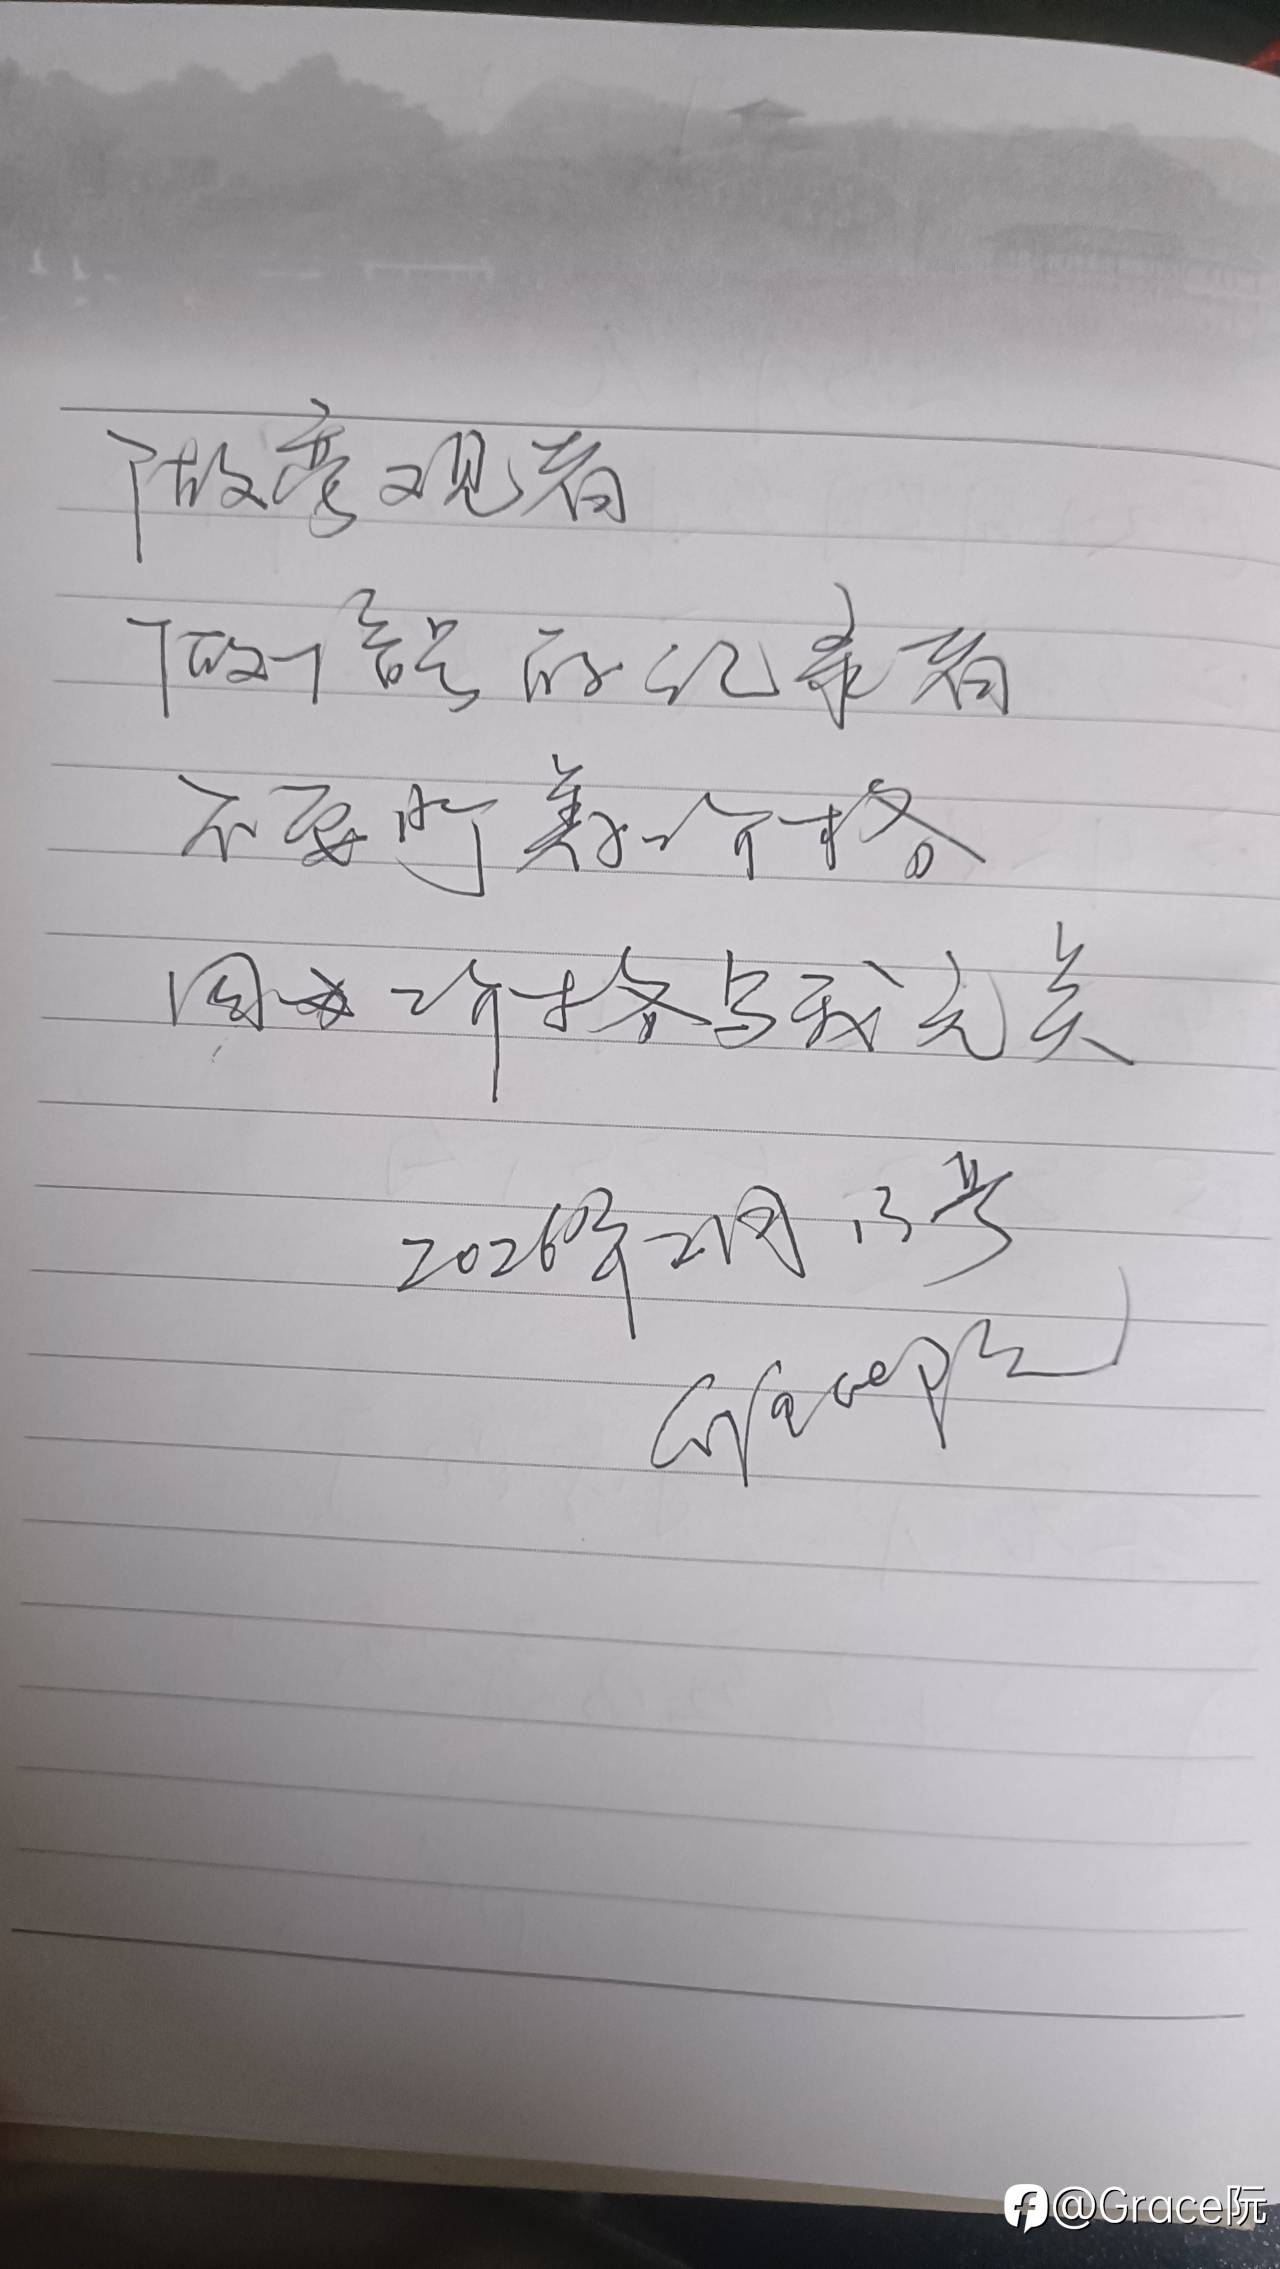 做旁观者
做个忠诚的记录者
不要听美价格
因为价格与我无关
2026年2月13号
Grace阮
@Grace阮